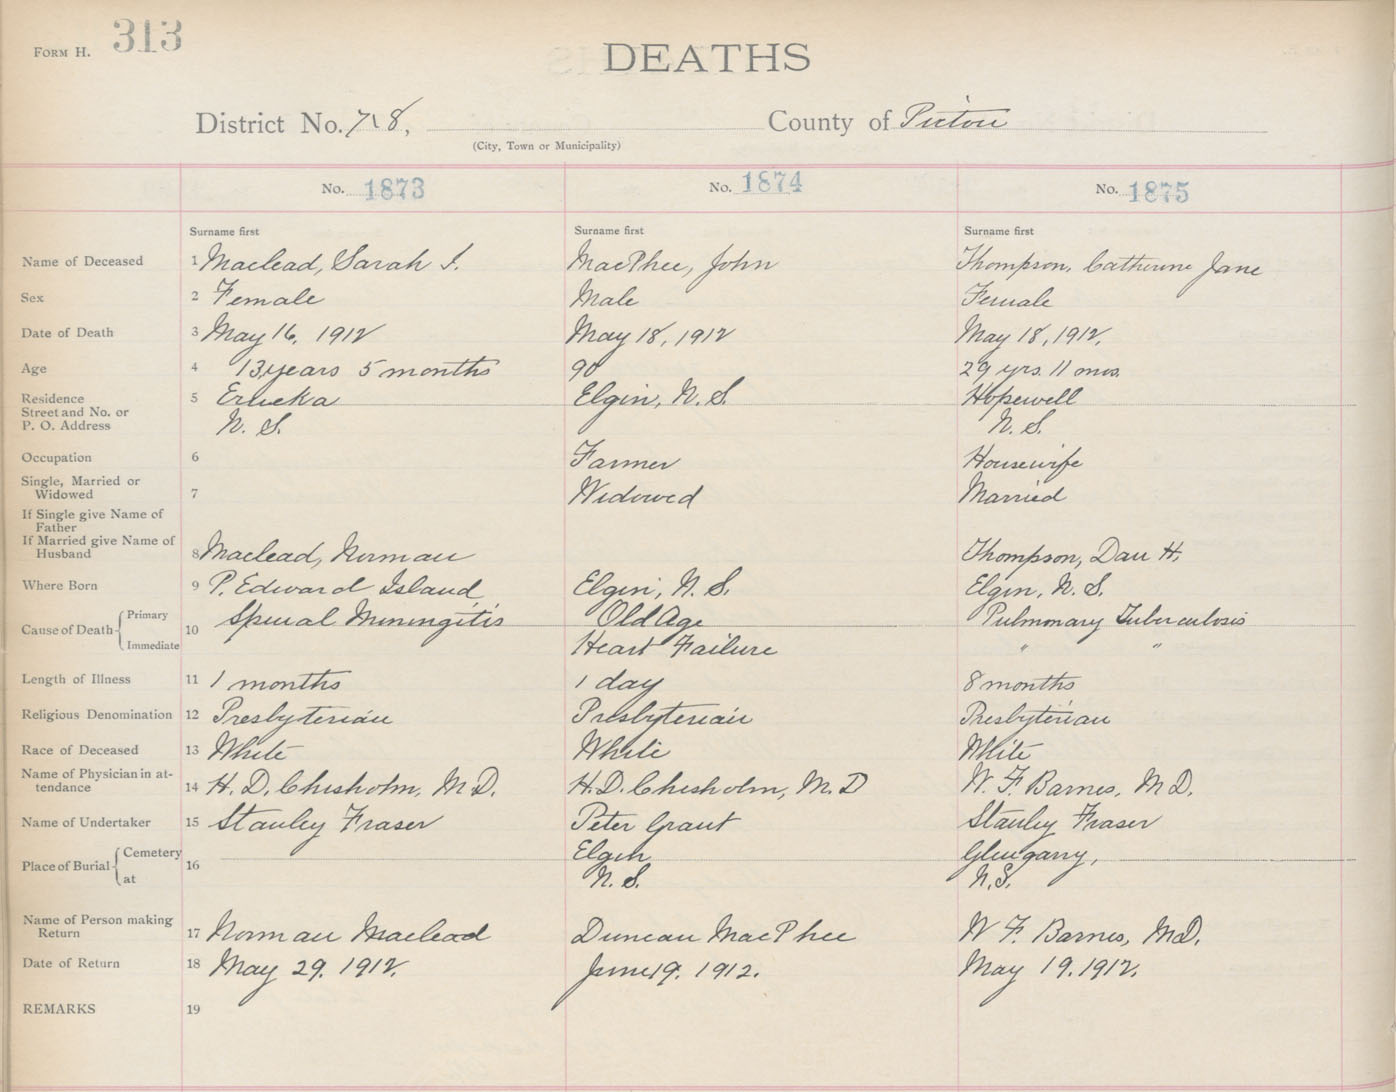 FORM H. 313
DEATHS
District No. 718, County of Pictou
(City, Town or Municipality)
No. 1873 No. 1874 No. 1875
Surname first Surname first Surname first
Name of Deceased 1 Maclead, Sarah I. MacPhee, John Thompson, Catherine Jane
Sex 2 Female Male Female
Date of Death 3 May 16, 1912 May 18, 1912 May 18, 1912.
Age 4 13 years 5 months 90 29 yrs. 11 mos.
Residence 5 Erueka Elgin, N. S. Hopewell
Street and No. or
P. O. Address N. S. N. S.
Occupation 6 Farmer Housewife
Single, Married or
Widowed 7 Widowed Married
If Single give Name of
Father
If Married give Name of
Husband 8 Maclead, Norman Thompson, Dan H.
Where Born 9 P. Edward Island Elgin, N. S. Elgin, N. S.
Cause of Death Primary 10 Spinal Miningitis Old Age Pulmonary Tuberculosis
Immediate Heart Failure " "
Length of Illness 11 1 months 1 day 8 months
Religious Denomination 12 Presbyterian Presbyterian Presbyterian
Race of Deceased 13 White White White
Name of Physician in at-
tendance 14 H. D. Chisholm, M D. H. D. Chisholm, M. D W. F. Barnes, M D.
Name of Undertaker 15 Stanley Fraser Peter Grant Stanley Fraser
Place of Burial Cemetery 16 Elgin Glengarry,
at N. S. N. S.
Name of Person making
Return 17 Norman Maclead Duncan MacPhee W F. Barnes, M D.
Date of Return 18 May 29. 1912. June 19. 1912. May 19. 1912.
REMARKS 19